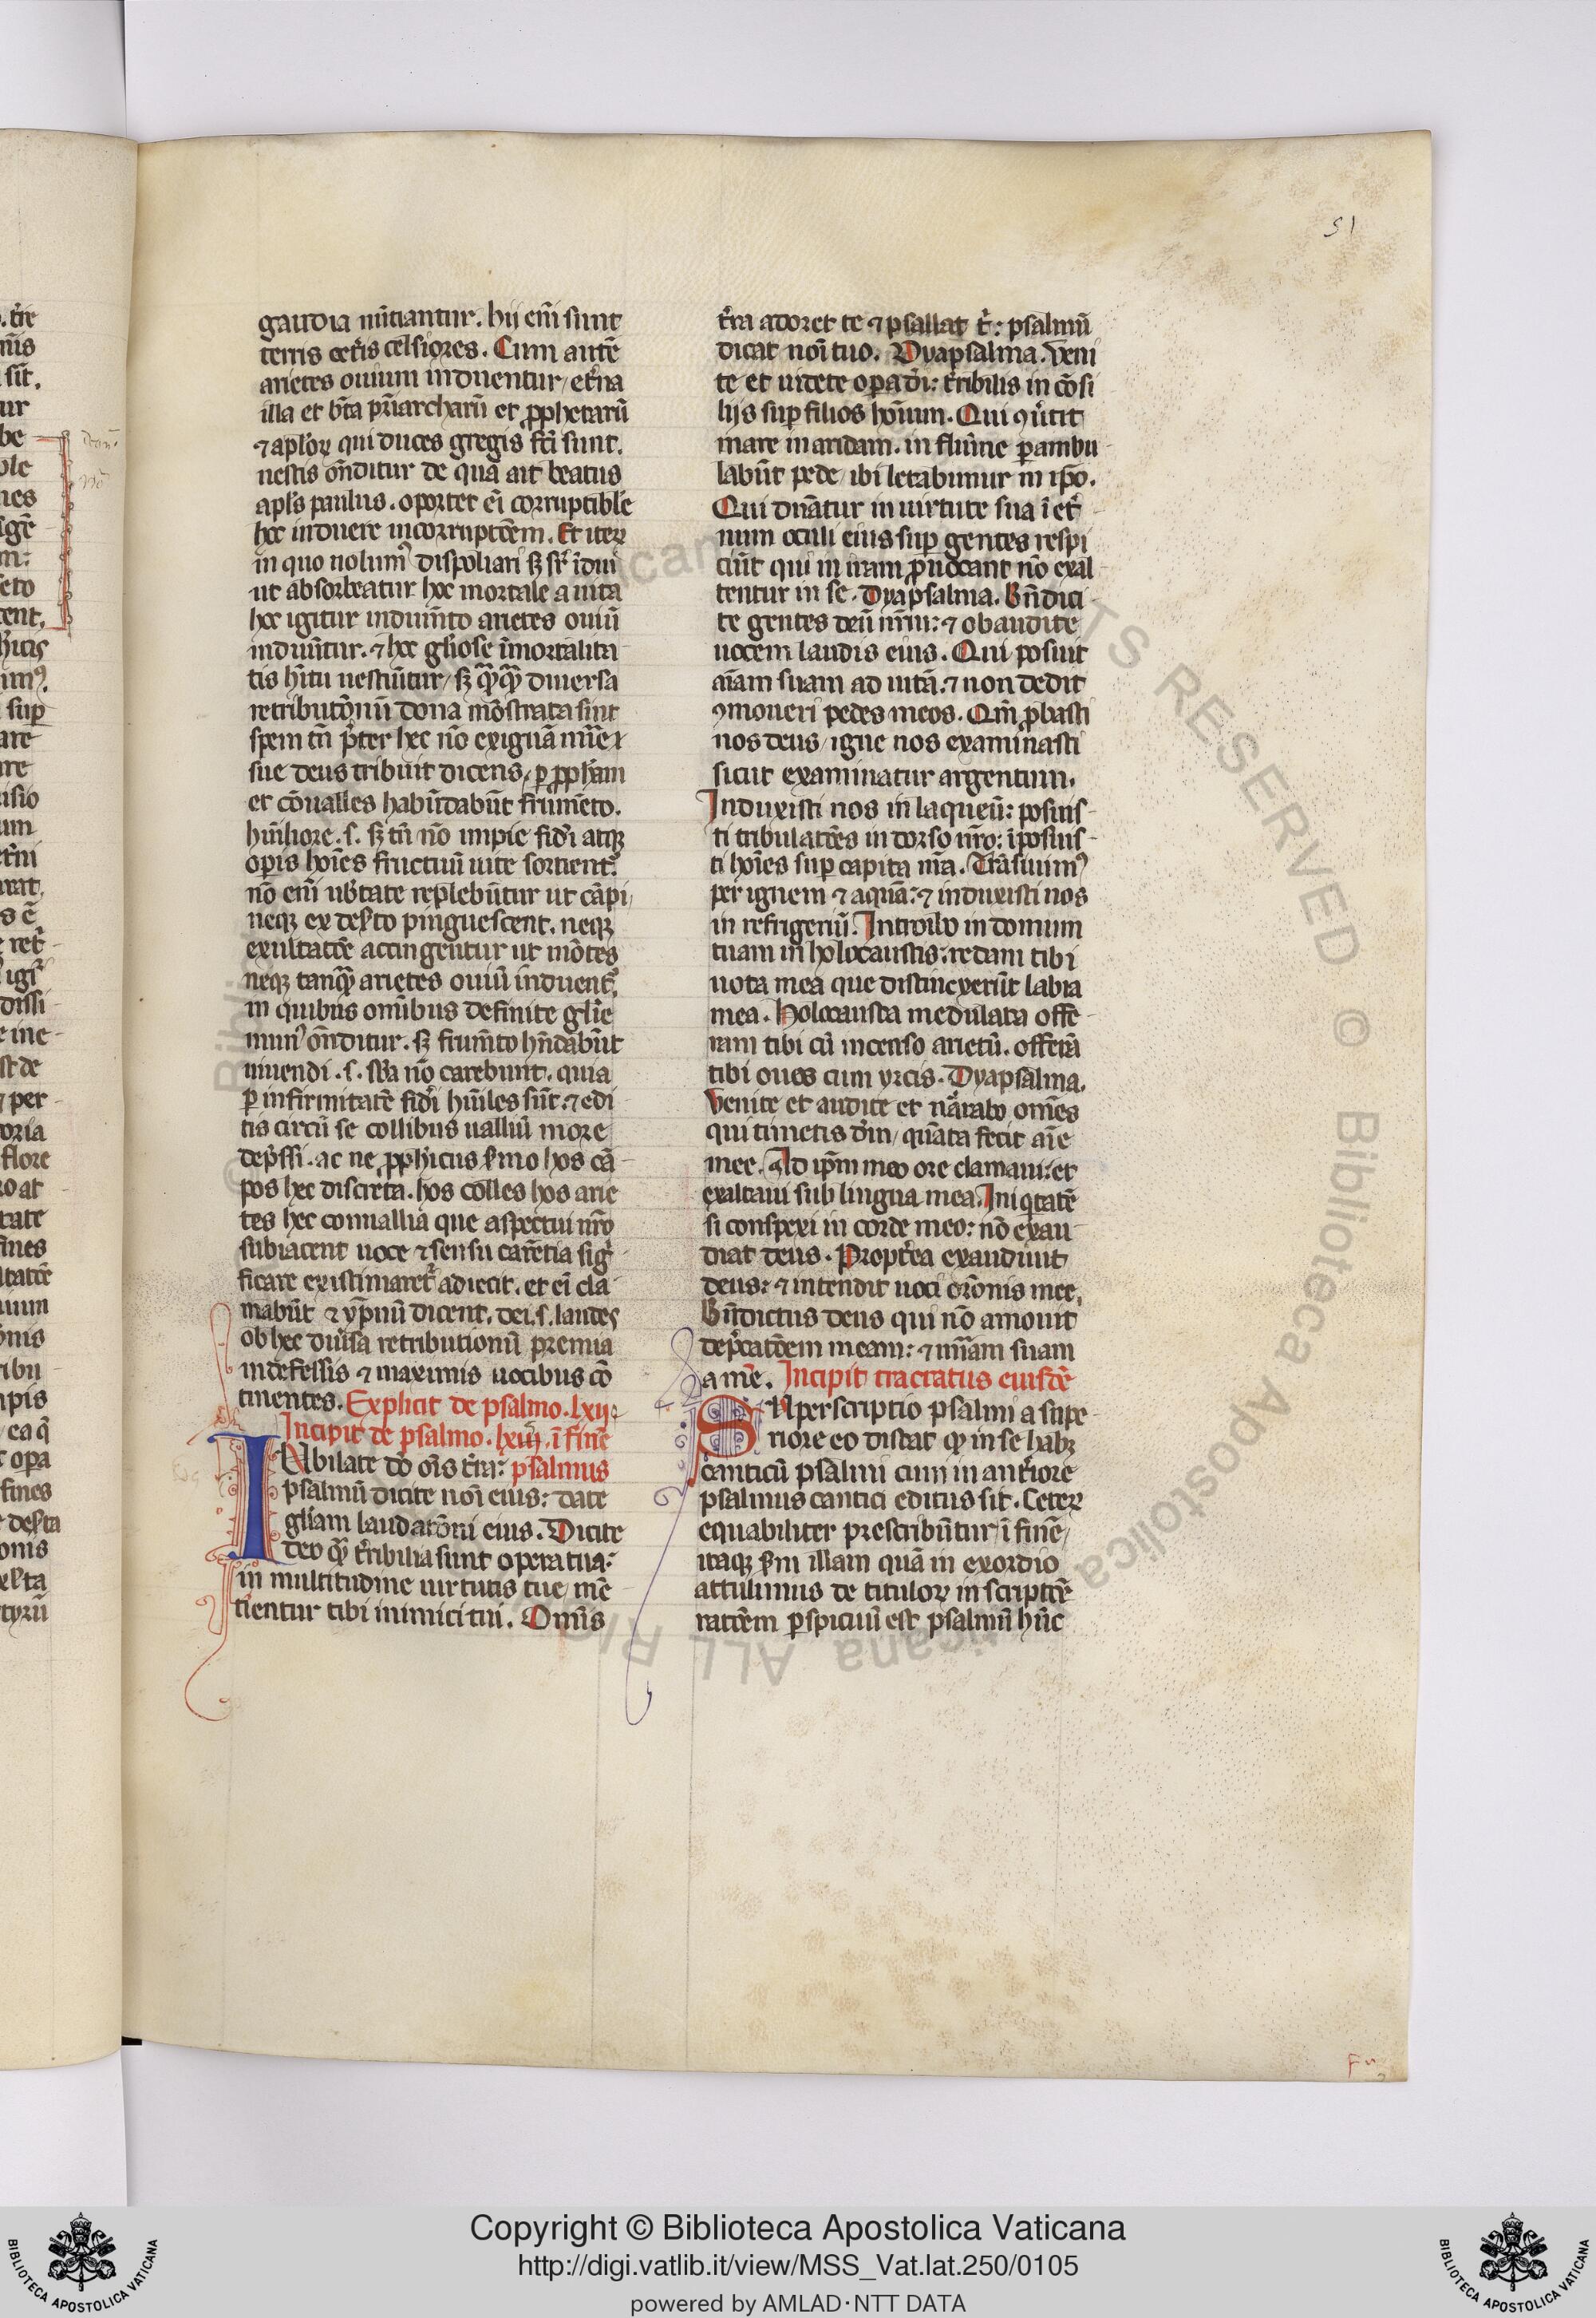 51
gaudia nūtiantur. hij eni̅ sunt
terris cet̓is celsiores. Cum aute̅
arietes ouium induentur, et̓na
illa et bt̅a pr̅iarcharu̅ et ꝓphetaru̅
⁊ aplo̅ꝝ qui duces gregis fc̅i sunt.
uestis on̅ditur de qua ait beatus
apls̅ paulus. oportet ei̅ corruptible̅
hec induere incorruptōe̅m. Et iteꝝ
in quo nolum᷒ dispoliari sꝫ sr̅ i̅dui
ut absorbeatur hoc mortale a uita
hec igitur indum̅to arietes ouiu̅
induu̅tur. ⁊ hec gl̅iose i̅mortalita
tis hi̅tu uestiu̅tur, sꝫ qꝫqꝫ diuersa
retributōnu̅ dona mo̅strata sint
spem tn̅ p̅ter hec no̅ exigua̅
sue deus tribuit dicens, ꝑ ꝓph̅am
et co̅ualles habu̅dabu̅t frume̅to.
hu̅iliore. s. sꝫ tn̅ no̅ impie fidi̅ atqꝫ
oꝑis hoi̅es fructuu̅ uite sortient᷑.
no̅ eni̅ ub̓tate replebu̅tur ut ca̅pi,
neqꝫ ex des̅to pinguescent. neqꝫ
exultatōe̅ accingentur ut mo̅tes
neqꝫ tanqꝫ arietes ouiu̅ induent᷑.
in quibus omi̅bus definite gl̅ie
mun᷒ on̅ditur. sꝫ frum̅to hn̅dabu̅t
uiuendi. s. sb̅a no̅ carebunt. quia
ꝑ infirmitate̅ fidi̅ hu̅iles su̅t. ⁊ edi
tis circu̅ se collibus ualliu̅ more
dep̅ssi. ac ne ꝓph̅icus s̅mo hos ca̅
pos hec discreta. hos colles hos arie
tes hec conuallia que aspectui nr̅o
subiacent uoce ⁊ sensu care̅tia sig̅
ficare existimaret᷑ adiecit. et ei̅ cla
mabu̅t ⁊ yp̅nu̅ dicent. dei. s. laudes
ob hec diu̓sa retributionu̅ premia
indefessis ⁊ maximis uocibus co̅
tinentes. Explicit de psalmo. lxij.
Incipit de psalmo. lxiij. i̅ fine̅
IUbilate do̅ oi̅s t̓ra: psalmus
psalmu̅ dicite noi̅ eius: date
gl̅iam laudatōni eius. Dicite
deo qꝫ t̓ribilia sunt opera tua:
in multitudine uirtutis tue me̅
tientur tibi inimici tui. Omi̅s
t̓ra adoret te ⁊ psallat t̓: psalmu̅
dicat noi̅ tuo. Dyapsalma. Veni
te et uidete oꝑa di̅: t̓ribilis in co̅si
lijs suꝑ filios hoi̅um. Qui ꝯu̓tit
mare in aridam. in flui̅ne ꝑambu
labu̅t pede, ibi letabimur in ip̅o.
Qui dn̅atur in uirtute sua i̅ et̓
num oculi eius suꝑ gentes respi
ciu̅t qui in iram ꝓuocant no̅ exal
tentur in se. Dyapsalma. Bn̅dici
te gentes deu̅ nr̅m: ⁊ obaudite
uocem laudis eius. Qui posuit
ai̅am suam ad uita̅. ⁊ non dedit
ꝯmoueri pedes meos. Qm̅ ꝓbasti
nos deus, igne nos examinasti
sicut examinatur argentum.
Induxisti nos in laqueu̅: posuis
ti tribulatōes in dorso nr̅o: i̅posuis
ti hoi̅es suꝑ capita nr̅a. Tra̅siuim᷒
per ignem ⁊ aqua̅: ⁊ induxisti nos
in refrigeriu̅. Introibo in domum
tuam in holocaustis: redam tibi
uota mea que distinxeru̅t labia
mea. Holocausta medulata offe̅
ram tibi cu̅ incenso arietu̅. offera̅
tibi oues cum yrcis. Dyapsalma.
Venite et audite et na̅rabo omes̅
qui timetis dm̅, qua̅ta fecit ai̅e
mee. Ad ip̅m meo ore clamaui: et
exaltaui sub lingua mea. Iniq̓tate̅
si conspexi in corde meo: no̅ exau
diat deus. Propt̓ea exaudiuit
deus: ⁊ intendit uoci oro̅nis mee.
Bn̅dictus deus qui no̅ amouit
dep̅catōem meam: ⁊ mi̅am suam
a me̅. Incipit tractatus eiusde̅
SUperscriptio psalmi a supe
riore eo distat ꝙ in se habꝫ
canticu̅ psalmi cum in ant̓iore
psalmus cantici editus sit. Ceteꝝ
equabiliter prescribu̅tur, i̅ fine̅,
itaqꝫ s̅m illam qua̅ in exordio
attulimus de tituloꝝ inscriptōe̅
ratōem ꝑspicuu̅ est psalmu̅ hu̅c
Copyright © Biblioteca Apostolica Vaticana
http://digi.vatlib.it/view/MSS_Vat.lat.250/0105
powered by AMLAD·NTT DATA
BIBLIOTECA APOSTOLICA VATICANA
BIBLIOTECA APOSTOLICA VATICANA